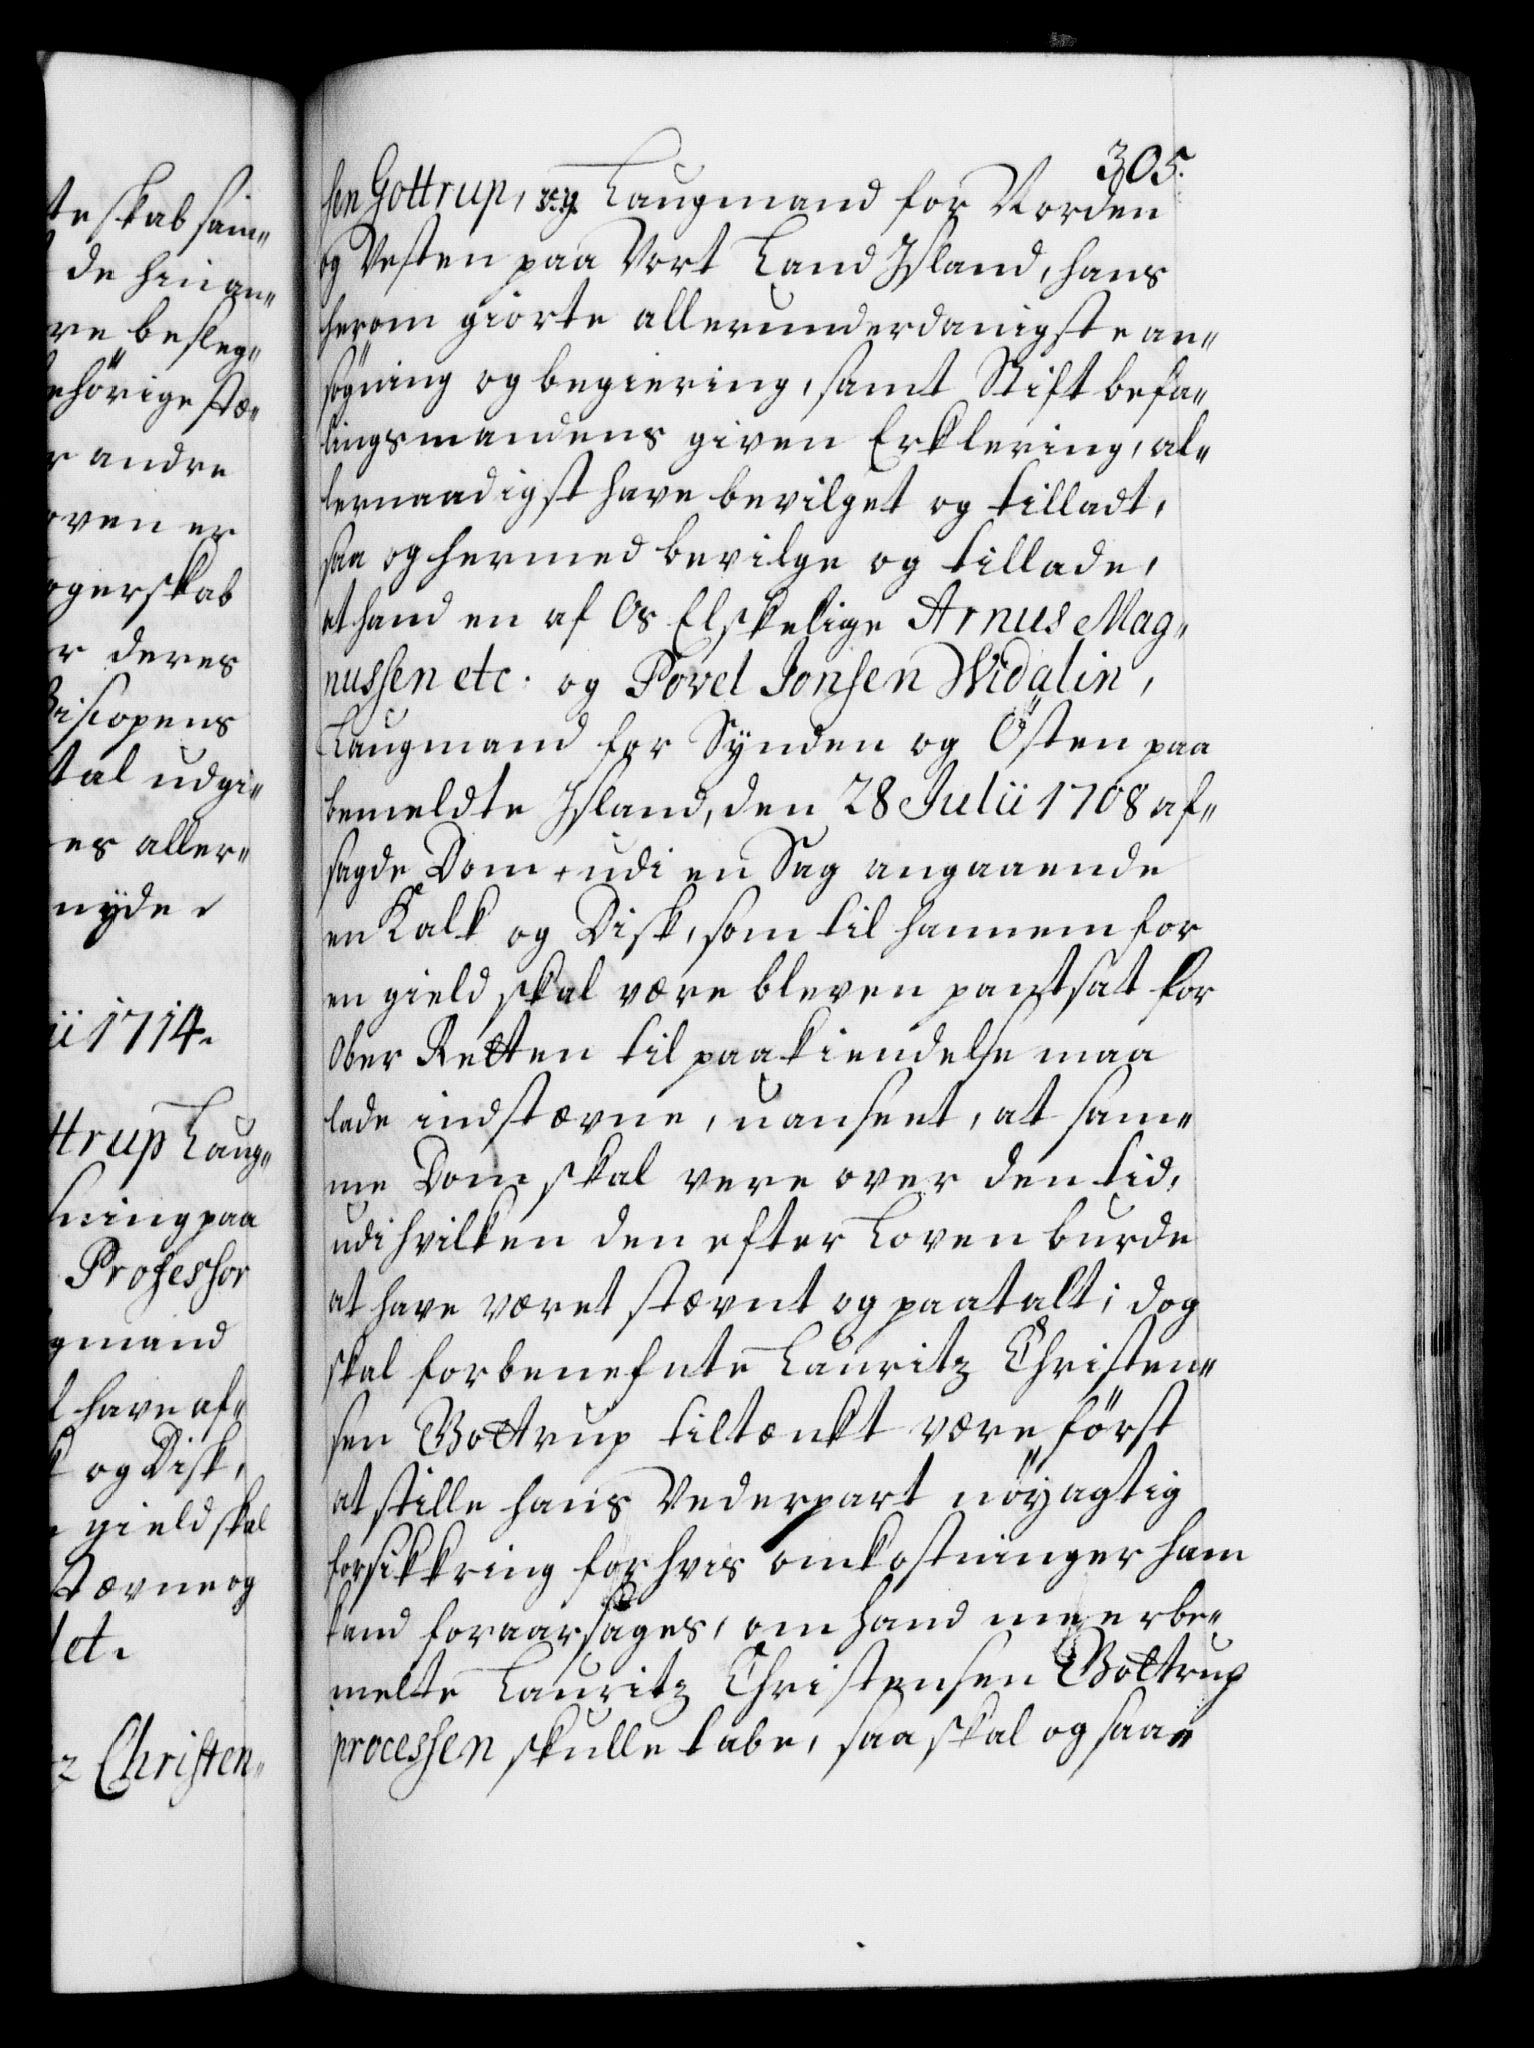 te skab sam"
de hinan"
re besleg"
ehörige stæ"
r andre
oven er
ogerskab
r deres
Biscopens
tal udgi"
es aller"
nyde
ii 1714.
ttrup Laug"
sning paa
Professor
gmand
l have af"
k og Disk,
gield skal
Stævne og
let.
z Christen"
305.
sen Gottrup, Laugmand for Norden
og Vesten paa Vort Land Island, hans
herom giorte allerunderdanigste an"
søgning og begiering, samt Stift befa"
lingsmandens given Erklering, al"
lernaadigst have bevilget og tilladt,
saa og hermed bevilge og tillade,
at hand en af Os Elskelige Arnus Mag"
nussen etc. og Povel Jonsen Widalin,
Laugmand for Synden og Östen paa
bemeldte Island, den 28 Julii 1708 af"
sagde Dom udi en Sag angaaende
en Kalk og Disk, som til hannem for
en gield skal være bleven pantsat for
Ober Retten til paakiendelse maa
lade indstævne, uanseet, at sam"
me Dom skal vere over den tid,
udi hvilken den efter Loven burde
at have været stævnt og paatalt; dog
skal forbenefnte Lauritz Christen"
sen Gottrup tiltænkt være, først
at stille hans Vederpart nöyagtig
forsikkring for hvis omkostninger ham
kand foraarsages, om hand meerbe"
melte Lauritz Christensen Gottrup
processen skulle tabe, saa skal og saa"